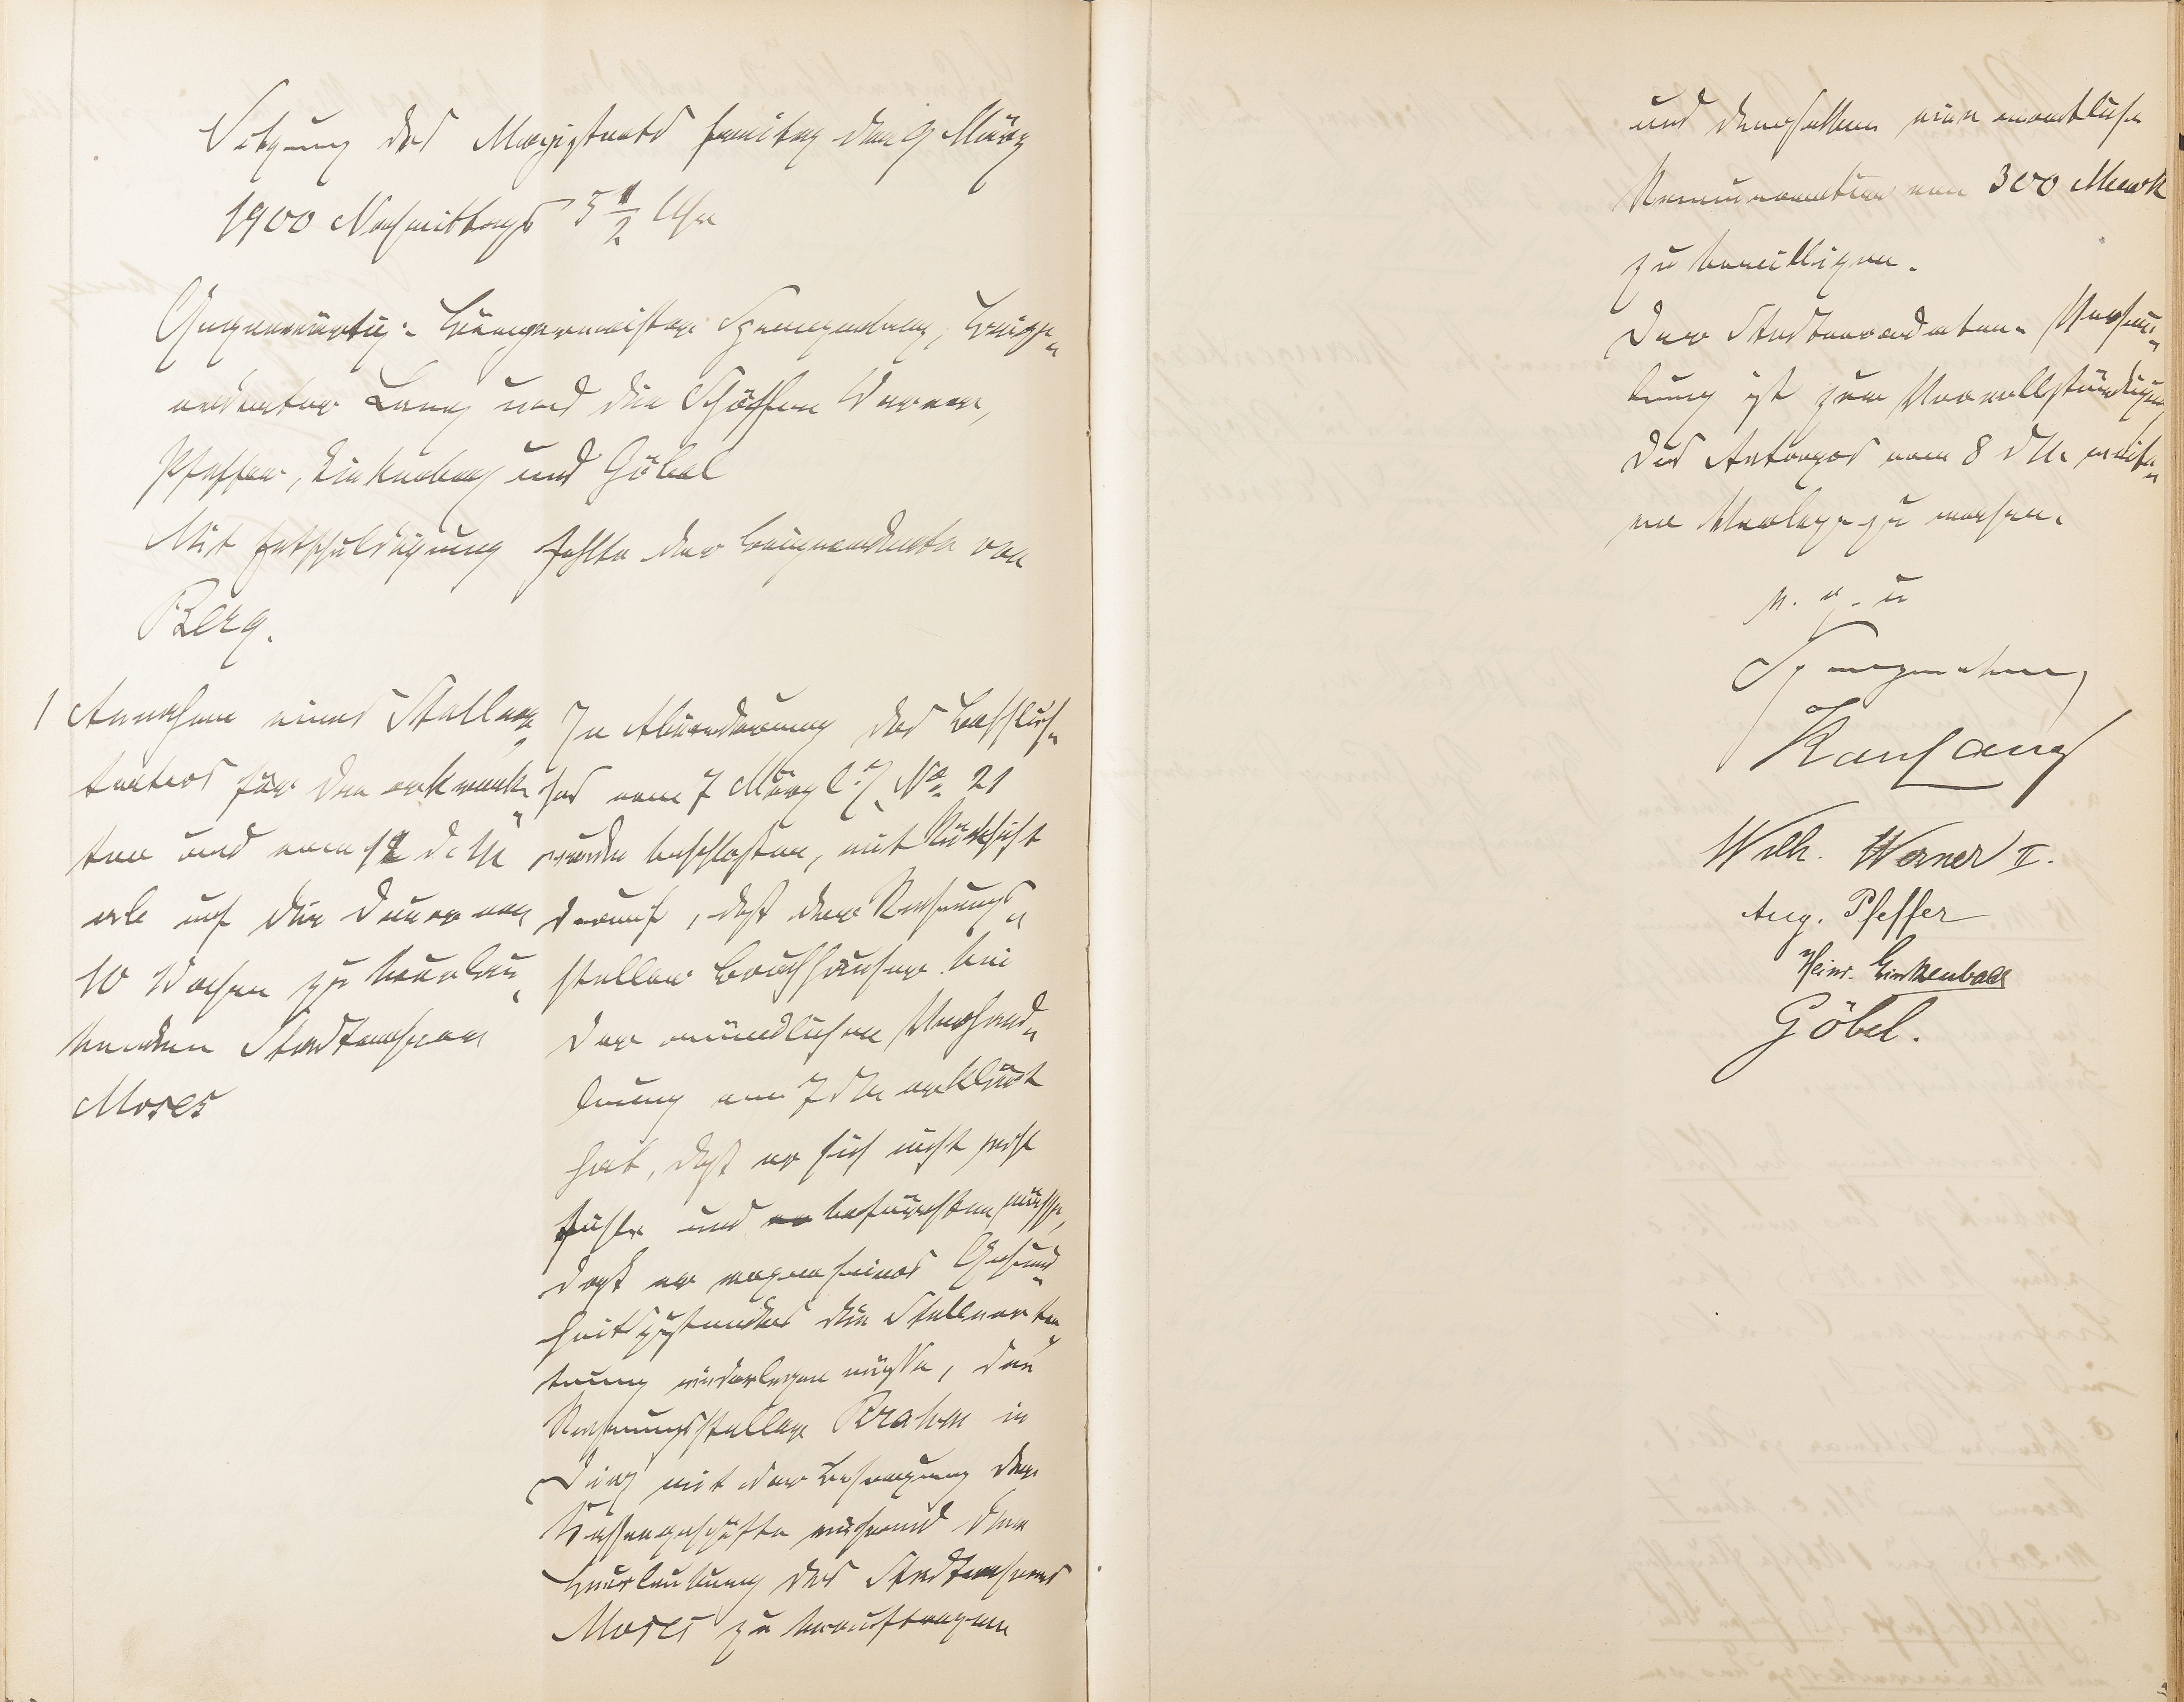 Sitzung des Magistrats Freitag den 9 März
1900 Nachmittags 5 1/2 Uhr
Gegenwärtig: Bürgermeister Spangenberg, Beige„
ordneter Lang und die Schöffen Werner,
Pfeffer, Linkenbach und Göbel
Mit Entschuldigung fehlte der Beigeordnete von
Berg.
1 Annahme eines Stellver„
treters für den erkrank„
ten und vom 12 d. Mts
ab auf die Dauer von
10 Wochen zu beurlau„
benden Stadtrechner
Moses
In Abänderung des Beschlus„
ses vom 7 März l. J. No 21
wurde beschlossen, mit Rücksicht
darauf, daß der Rechnungs„
steller Bruchhäuser bei
der mündlichen Verhand„
lung am 7 d Mts erklärt
hat, daß er sich nicht wohl
fühle und befürchten müsse,
daß er wegen seines Gesund„
heitszustandes die Stellvertre„
tung niederlegen müsse, den
Rechnungssteller Brahm in
Diez mit der Besorgung der
Kassengeschäfte während der
Beurlaubung des Stadtrechners
Moses zu beauftragen
und demselben eine monatliche
Remuneration von 300 Mark
zu bewilligen.
Der Stadtverordneten-Versam„
lung ist zur Vervollständigung
des Antrages vom 8 d Mts weite„
re Vorlage zu machen.
v. g. u
Spangenberg
Karl Lang
Wilh. Werner II.
Aug. Pfeffer
Heinr. Linkenbach
Göbel.